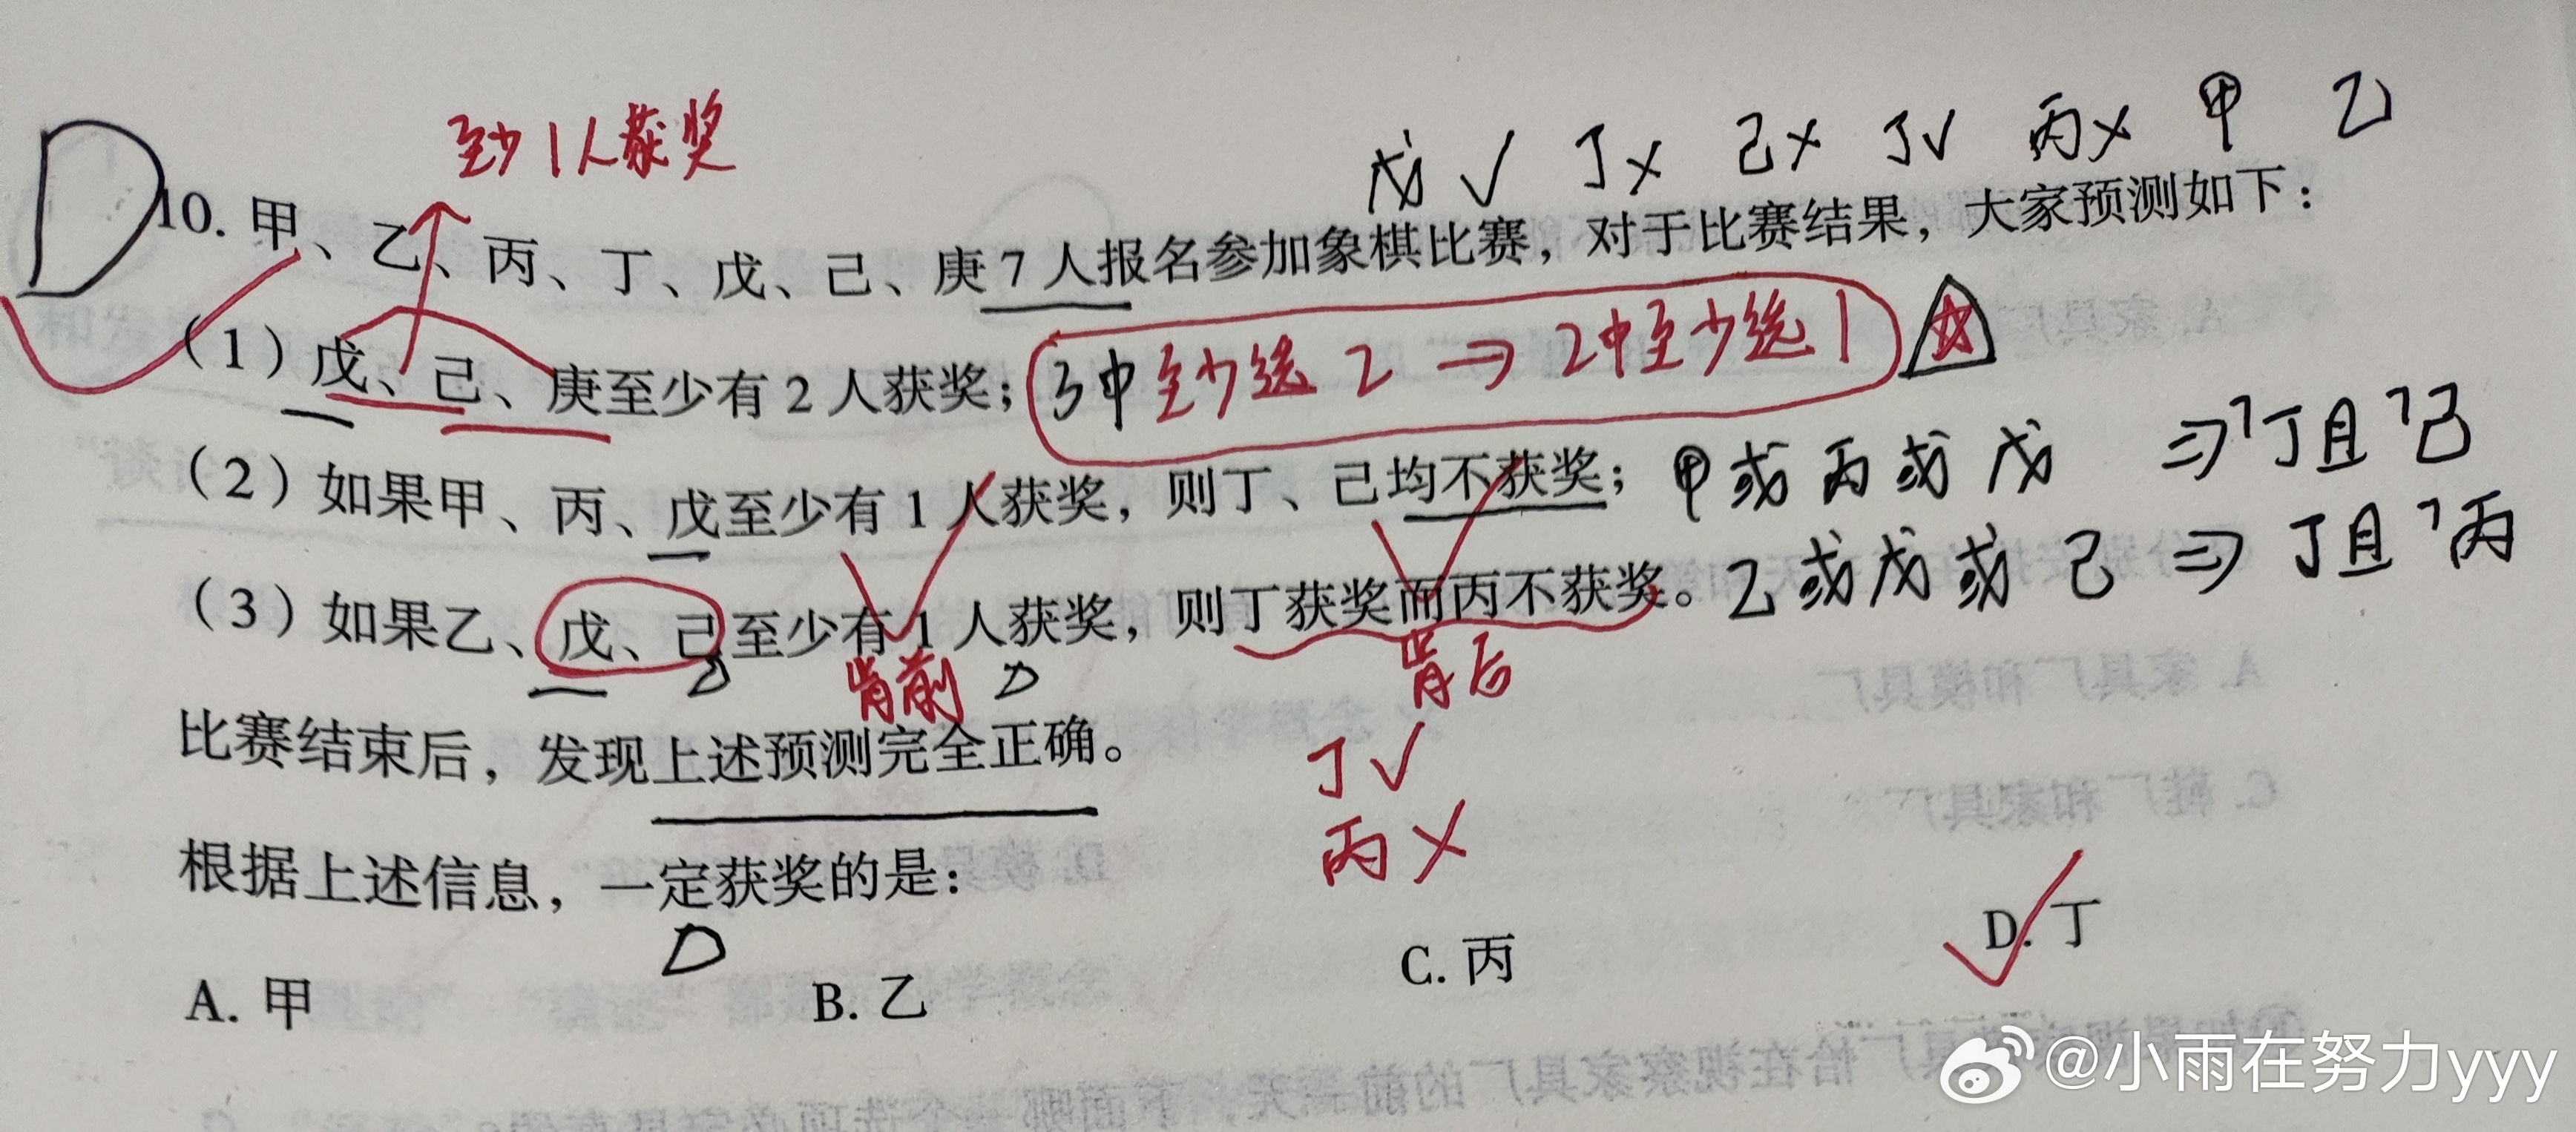 至少1人获奖
戊√ 丁× 己× 丁√ 丙× 甲 乙
D
10. 甲、乙、丙、丁、戊、己、庚7人报名参加象棋比赛，对于比赛结果，大家预测如下：
（1）戊、己、庚至少有2人获奖；
3中至少选2⇒2中至少选1
（2）如果甲、丙、戊至少有1人获奖，则丁、己均不获奖；
甲或丙或戊 ⇒ ㄱ丁且ㄱ己
（3）如果乙、戊、己至少有1人获奖，则丁获奖而丙不获奖。
乙或戊或己 ⇒ 丁且ㄱ丙
肯前
肯后
比赛结束后，发现上述预测完全正确。
丁√
丙×
根据上述信息，一定获奖的是：
A. 甲
B. 乙
C. 丙
D. 丁
@小雨在努力yyy